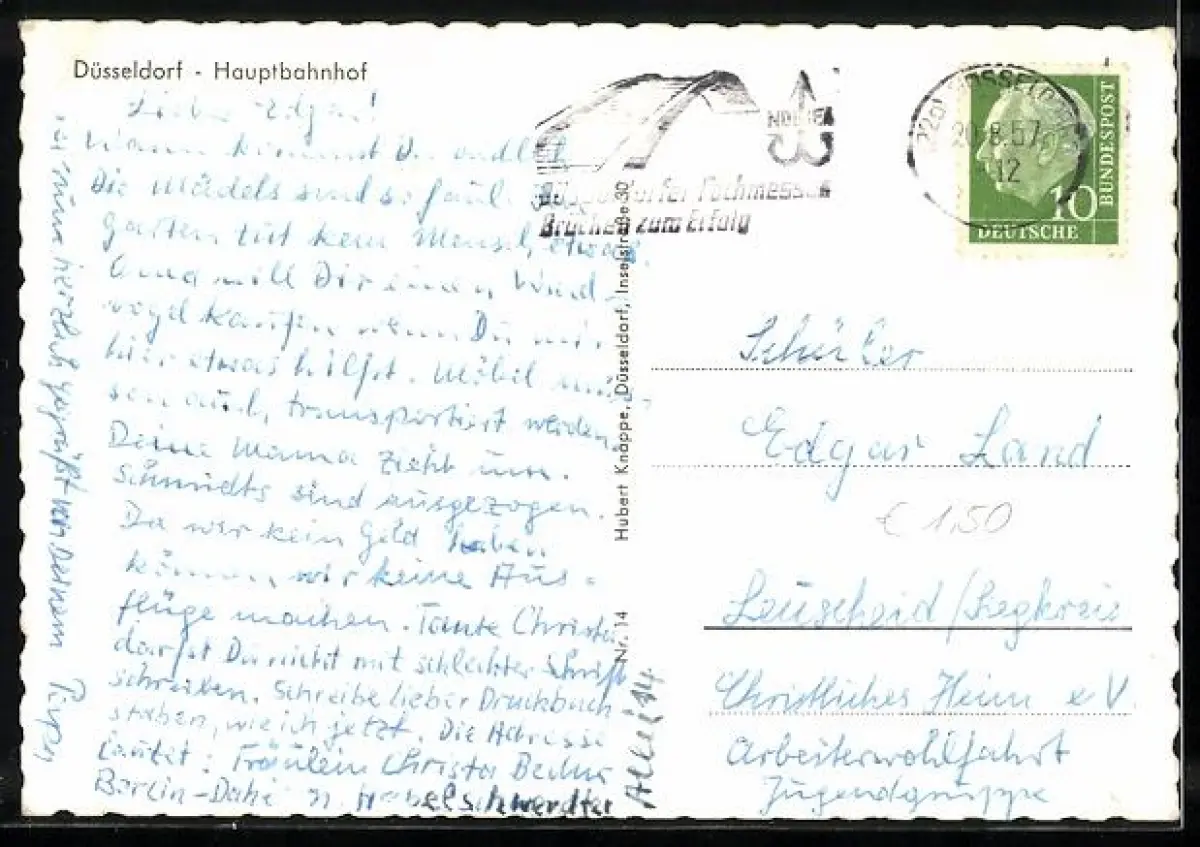 Düsseldorf - Hauptbahnhof
Lieber Edgar!
Wann kommst Du endlich
Die Mädels sind so faul. Im
Garten tut kein Mensch etwas.
will Dir einen Wind-
vogel kaufen wenn Du mir
hier etwas hilfst. Möbel müs-
sen auch transportiert werden.
Deine Mama zieht um.
Schmidts sind ausgezogen.
Da wir kein Geld haben
können wir keine Aus-
flüge machen. Tante Christa
darfst Du nicht mit schlechter Schrift
schreiben. Schreibe lieber Druckbuch
staben, wie ich jetzt. Die Adresse
lautet: Fräulein Christa
Berlin-Dahlem Habelschwerdter
Allee 14
herzlich gegrüßt von Deinem
Nr. 14 Hubert Knäppe, Düsseldorf, Inselstraße 30
NOWEA
Düsseldorfer Fachmessen
Brücken zum Erfolg
(22a) DÜSSELDORF
20.8.57
12
10
BUNDESPOST
DEUTSCHE
Schüler
Edgar Land
€ 1,50
Leuscheid/Siegkreis
Christliches Heim e.V.
Arbeiterwohlfahrt
Jugendgruppe